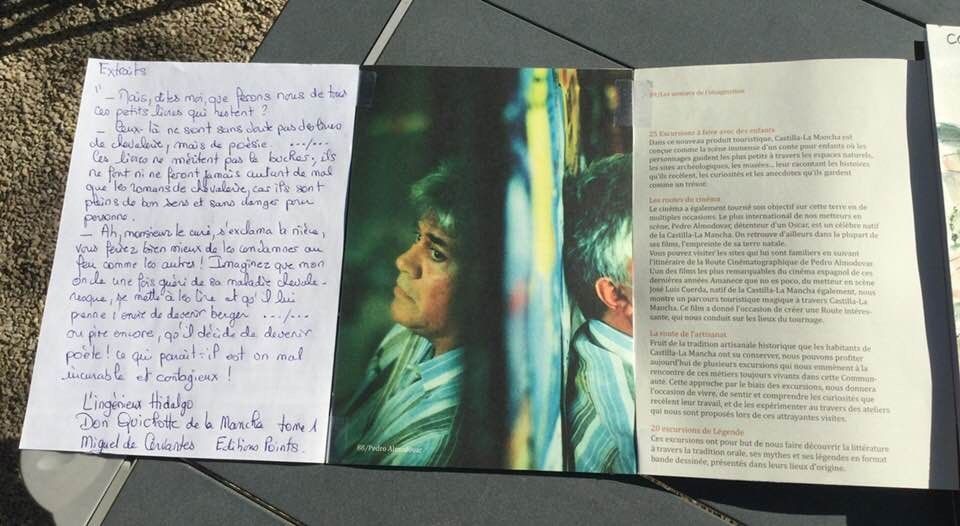 Extraits
" _ Mais, dites moi, que ferons nous de tous
ces petits livres qui restent ?
_ Ceux là ne sont sans doute pas de livres
de chevalerie, mais de poésie. .../...
Ces livres ne méritent pas le bûcher, ils
ne font ni ne feront jamais autant de mal
que les romans de chevalerie, car ils sont
pleins de bon sens et sans danger pour
personne.
_ Ah, monsieur le curé, s'exclama la nièce,
vous feriez bien mieux de les condamner au
feu comme les autres ! Imaginez que mon
oncle une fois guéri de sa maladie chevale-
resque, se mette à les lire et qu'il lui
prenne l'envie de devenir berger .../...
ou pire encore, qu'il décide de devenir
poète ! ce qui paraît-il est un mal
incurable et contagieux !
L'ingénieux Hidalgo
Don Quichotte de la Mancha tome 1
Miguel de Cervantes Editions Points.
86/Pedro Almodovar
/Les sentiers de l'imagination
25 Excursions à faire avec des enfants
Dans ce nouveau produit touristique, Castilla-La Mancha est
conçue comme la scène immense d'un conte pour enfants où les
personnages guident les plus petits à travers les espaces naturels,
les sites archéologiques, les musées... leur racontant les histoires
qu'ils recèlent, les curiosités et les anecdotes qu'ils gardent
comme un trésor.
Les routes du cinéma
Le cinéma a également tourné son objectif sur cette terre en de
multiples occasions. Le plus international de nos metteurs en
scène, Pedro Almodovar, détenteur d'un Oscar, est un célèbre natif
de la Castilla-La Mancha. On retrouve d'ailleurs dans la plupart de
ses films, l'empreinte de sa terre natale.
Vous pouvez visiter les sites qui lui sont familiers en suivant
l'itinéraire de la Route Cinématographique de Pedro Almodovar.
L'un des films les plus remarquables du cinéma espagnol de ces
dernières années Amanece que no es poco, du metteur en scène
José Luis Cuerda, natif de la Castilla-La Mancha également, nous
montre un parcours touristique magique à travers Castilla-La
Mancha. Ce film a donné l'occasion de créer une Route intéres-
sante, qui nous conduit sur les lieux du tournage.
La route de l'artisanat
Fruit de la tradition artisanale historique que les habitants de
Castilla-La Mancha ont su conserver, nous pouvons profiter
aujourd'hui de plusieurs excursions qui nous emmènent à la
rencontre de ces métiers toujours vivants dans cette Commun-
auté. Cette approche par le biais des excursions, nous donnera
l'occasion de vivre, de sentir et comprendre les curiosités que
recèlent leur travail, et de les expérimenter au travers des ateliers
qui nous sont proposés lors de ces attrayantes visites.
20 excursions de Légende
Ces excursions ont pour but de nous faire découvrir la littérature
à travers la tradition orale, ses mythes et ses légendes en format
bande dessinée, présentés dans leurs lieux d'origine.